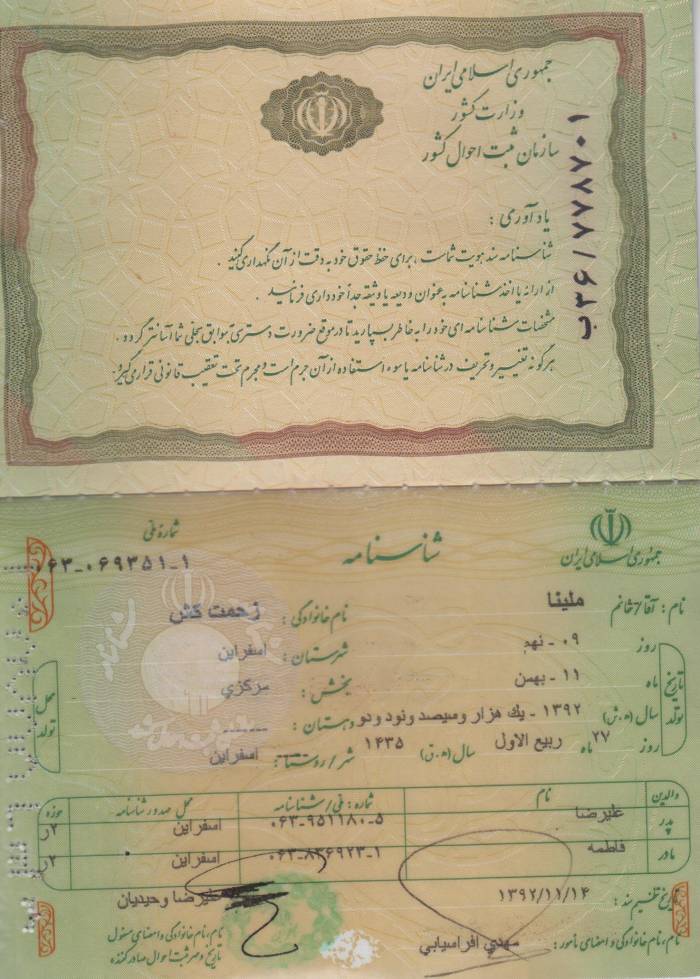 جمهوری اسلامی ایران
وزارت کشور
سازمان ثبت احوال کشور
ب ۳۶/۷۷۸۷۰۱
یادآوری :
شناسنامه سند هویت شماست ، برای حفظ حقوق خود به دقت از آن نگهداری کنید .
از ارائه یا اخذ شناسنامه به عنوان ودیعه یا وثیقه جداً خودداری فرمائید .
مشخصات شناسنامه ای خود را به خاطر بسپارید تا در موقع ضرورت دسترسی به سوابق سجلی شما آسانتر گردد .
هرگونه تغییر و تحریف در شناسنامه یا سوء استفاده از آن جرم است و مجرم تحت تعقیب قانونی قرار می گیرد .
جمهوری اسلامی ایران
شناسنامه
شماره ملی
۰۶۳-۰۶۹۳۵۱-۱
نام : آقا/خانم ملینا
نام خانوادگی : زحمت کش
تاریخ تولد
روز ۰۹ - نهم
ماه ۱۱ - بهمن
سال (ه.ش) ۱۳۹۲ - یك هزار وسیصد ونود ودو
روز ۲۷ ماه ربیع الاول سال (ه.ق) ۱۴۳۵
محل تولد
شهرستان : اسفراین
بخش : مرکزي
دهستان : ------
شهر/روستا : اسفراین
والدین نام شماره : ملی/شناسنامه محل صدور شناسنامه حوزه
پدر علیرضا ۰۶۳-۹۵۱۱۸۰-۵ اسفراین ۲ر
مادر فاطمه ۰۶۳-۸۳۶۹۲۳-۱ اسفراین ۲ر
تاریخ تنظیم سند : ۱۳۹۲/۱۱/۱۴
نام، نام خانوادگی و امضای مأمور : مهدي افراسیابي
علیرضا وحیدیان
نام، نام خانوادگی و امضای مسئول
تاریخ و مهر ثبت احوال صادر کننده